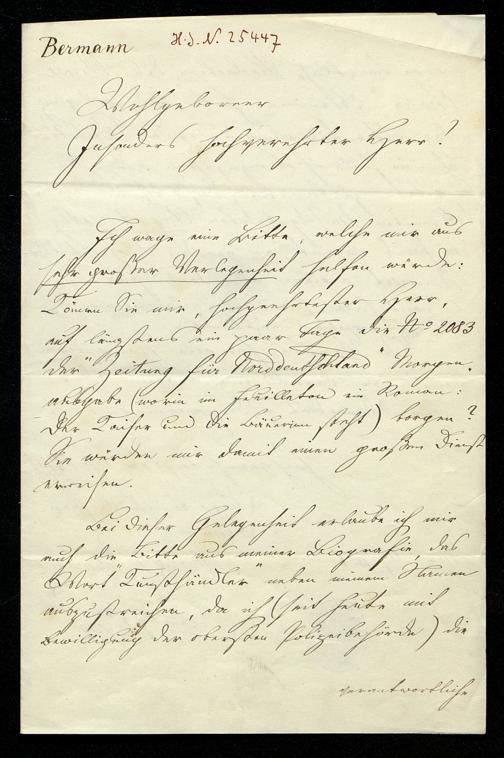 Bermann
H. I. N. 25447
Wohlgeborner
Insonders hochverehrter Herr!
Ich wage eine Bitte, welche mir aus
sehr großer Verlegenheit helfen würde:
Können Sie mir, hochgeehrtester Herr,
auf längstens ein paar Tage die No 2083
der "Zeitung für Norddeutschland" Morgen-
ausgabe (worin im Feuilleton ein Roman:
Der Kaiser und die Bäuerin steht) borgen?
Sie würden mir damit einen großen Dienst
erweisen.
Bei dieser Gelegenheit erlaube ich mir
auch die Bitte aus meiner Biografie, das
Wort "Kunsthändler" neben meinem Namen
auszustreichen, da ich (seit heute mit
Bewilligung der obersten Polizeibehörde) die
verantwortliche